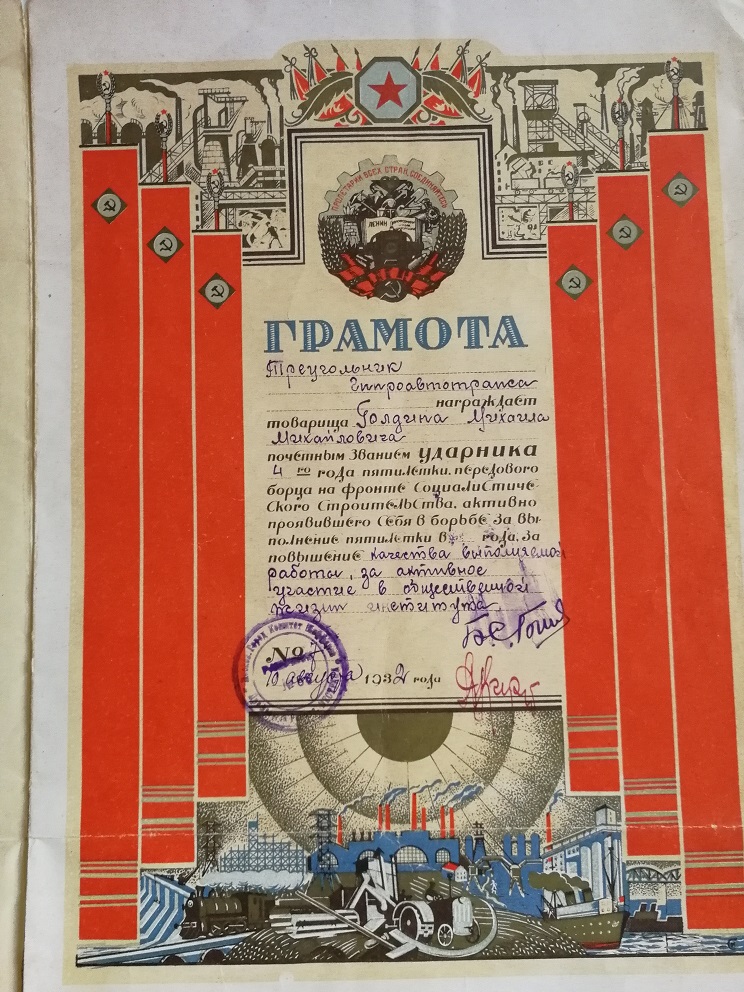 ПРОЛЕТАРИИ ВСЕХ СТРАН, СОЕДИНЯЙТЕСЬ
ЛЕНИН
ГРАМОТА
Треугольник
Гипроавтотранса
награждает
товарища Голдина Михаила
Михайловича
почетным званием ударника
4 го года пятилетки, передового
борца на фронте социалистиче
ского строительства, активно
проявившего себя в борьбе за вы-
полнение пятилетки в года, за
повышение качества выполняемой
работы, за активное
участие в общественной
жизни института
№ 7
10 августа 1932 года